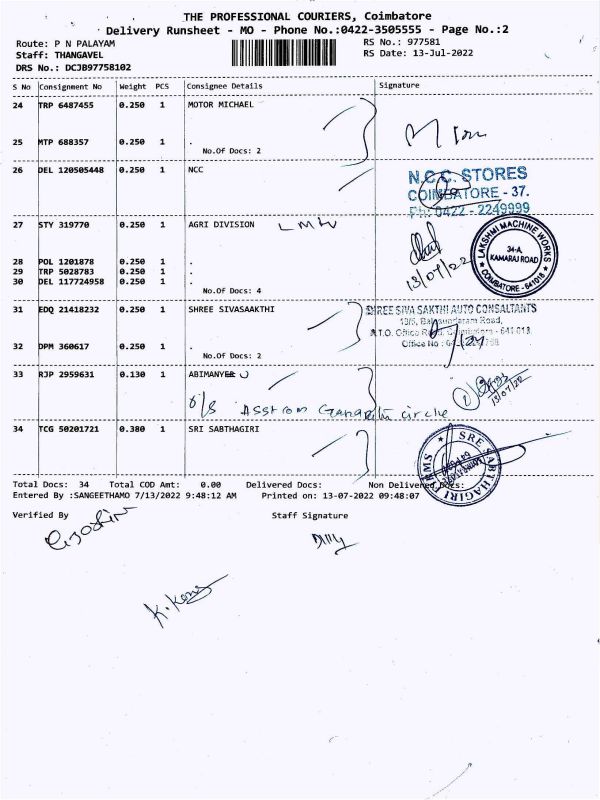 THE PROFESSIONAL COURIERS, Coimbatore
Delivery Runsheet - MO - Phone No.:0422-3505555 - Page No.:2
Route: P N PALAYAM
RS No.: 977581
Staff: THANGAVEL
RS Date: 13-Jul-2022
DRS No.: DCJB97758102
S No Consignment No Weight PCS Consignee Details Signature
24 TRP 6487455 0.250 1 MOTOR MICHAEL
25 MTP 688357 0.250 1 .
No.Of Docs: 2
26 DEL 120505448 0.250 1 NCC
N.C.C. STORES
COIMBATORE - 37.
Ph: 0422 - 2249999
27 STY 319770 0.250 1 AGRI DIVISION LMW
LAKSHMI MACHINE WORKS
34-A,
KAMARAJ ROAD
COIMBATORE - 641018
13/07/22
28 POL 1201878 0.250 1 .
29 TRP 5028783 0.250 1 .
30 DEL 117724958 0.250 1 .
No.Of Docs: 4
31 EDQ 21418232 0.250 1 SHREE SIVASAAKTHI
SHREE SIVA SAKTHI AUTO CONSALTANTS
Balasundaram Road,
R.T.O. Office Road, Coimbatore - 641 018
Office No :
32 DPM 360617 0.250 1 .
No.Of Docs: 2
33 RJP 2959631 0.130 1 ABIMANYU
13/07/22
O/S circle
34 TCG 50201721 0.380 1 SRI SABTHAGIRI
SRE SABTHAGIRI
Total Docs: 34 Total COD Amt: 0.00 Delivered Docs: Non Delivered Docs:
Entered By :SANGEETHAMO 7/13/2022 9:48:12 AM Printed on: 13-07-2022 09:48:07
Verified By Staff Signature